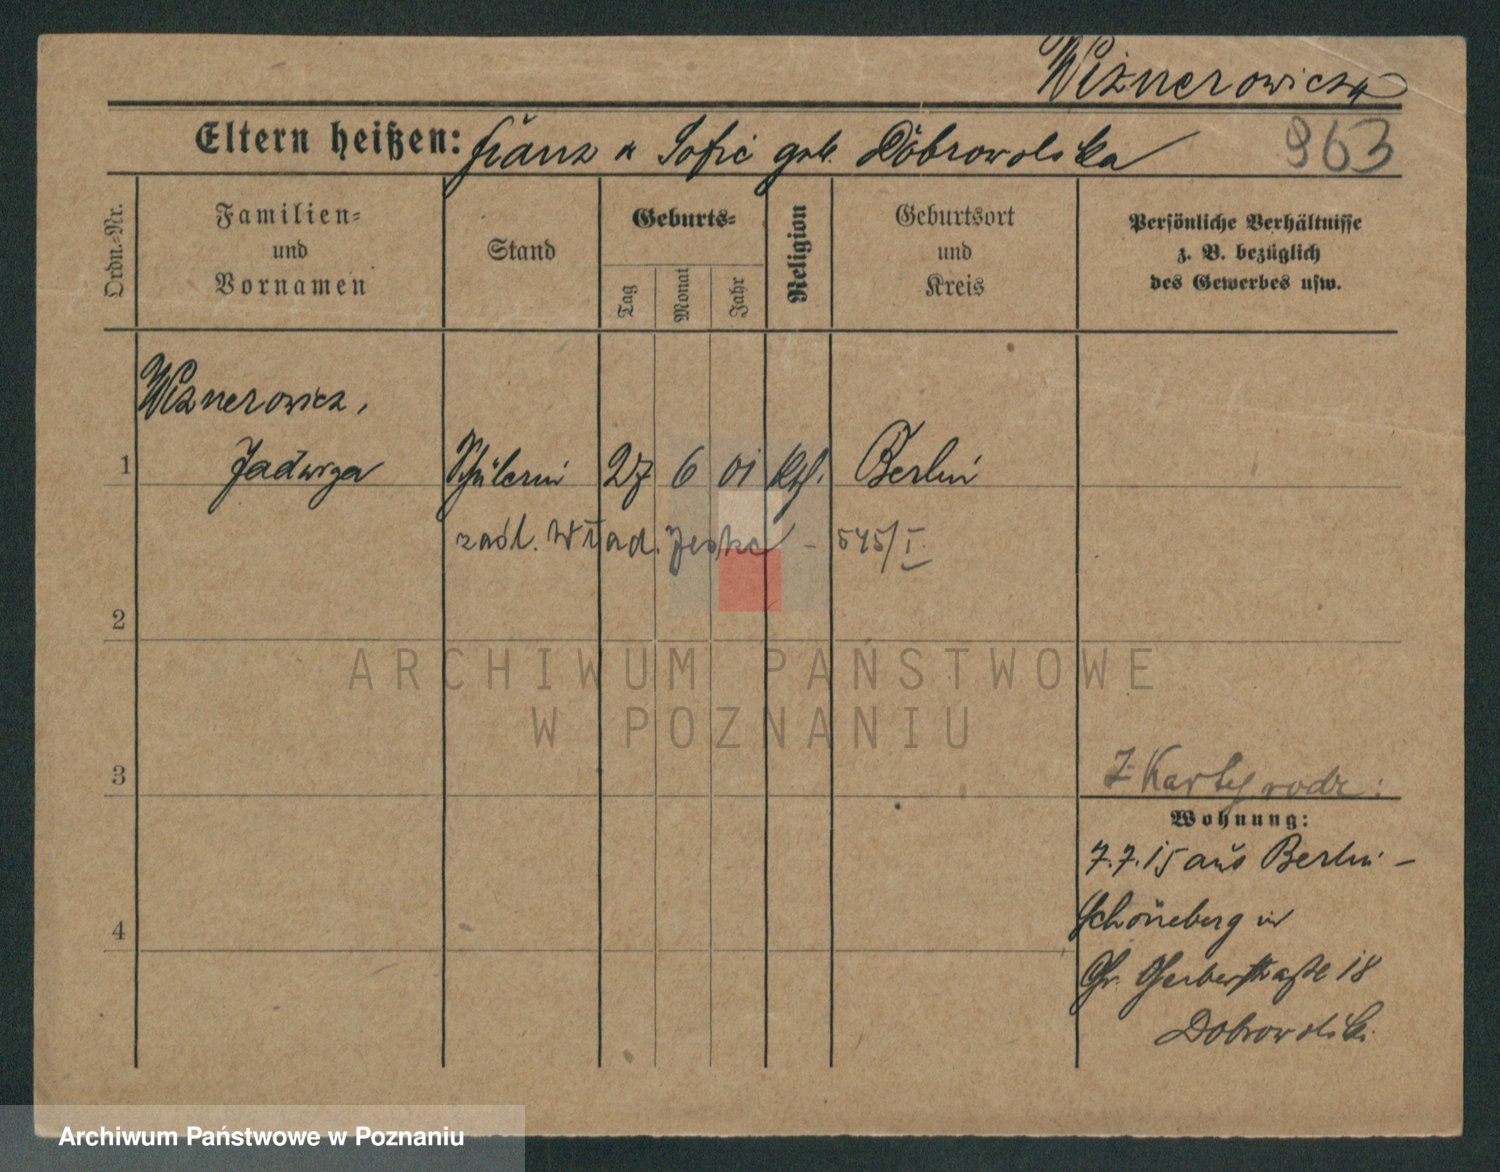 Wiznerowicz
Eltern heißen: Franz u Sofie geb. Dobrowolska
963
Ordn.-Nr.
Familien-
und
Vornamen
Stand
Geburts-
Tag
Monat
Jahr
Religion
Geburtsort
und
Kreis
Persönliche Verhältnisse
z. B. bezüglich
des Gewerbes usw.
Wiznerowicz,
1 Jadwiga Schülerin 27 6 01 kth. Berlin
zaśl. Wład. Jeske - 545/I.
2
ARCHIWUM PAŃSTWOWE
W POZNANIU
3
Z Karty rodz:
Wohnung:
7.7.15 aus Berlin-
Schöneberg in
4
Gr. Gerberstraße 18
Dobrowolski.
Archiwum Państwowe w Poznaniu